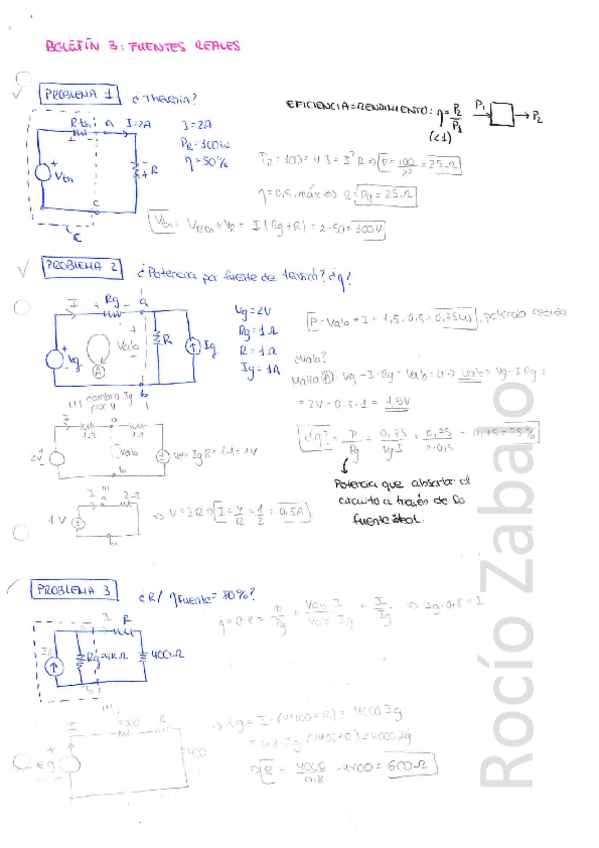 BOLETÍN 3: FUENTES REALES
PROBLEMA 1
¿Thevenin?
EFICIENCIA = RENDIMIENTO: η = P2/P1
(<1)
P1
P2
Rth
a
I=2A
I=2A
PR=100W
η=50%
Vth
R
c
P2 = 100 = V I = I²R ⇒ R = 100/2² = 25Ω
η=0,5, máx ⇔ R = Rg = 25Ω
Vth = VRth + VR = I (Rg+R) = 2·50 = 100V
PROBLEMA 2
¿Potencia por fuente de tensión? ¿η?
I
Rg
a
Vg
Vab
R
Ig
A
b
Vg=2V
Rg=1Ω
R=1Ω
Ig=1A
P = Vab · I = 1,5·0,5 = 0,75W, potencia cedida
¿Vab?
Malla A: Vg - I·Rg - Vab = 0 ⇒ Vab = Vg - I Rg =
= 2V - 0,5·1 = 1,5V
I
1Ω
a
1Ω
2V
Vab
b
V = Ig R = 1·1 = 1V
¿η? = P/Pg = 0,75/Vg I = 0,75/2·0,5 = 0,75 = 75%
Potencia que absorbe el
circuito a través de la
fuente ideal.
I
2Ω
1V
b
⇒ V = I R ⇒ I = V/R = 1/2 = 0,5A
PROBLEMA 3
¿R/ ηfuente = 80%?
I
R
Ig
Rg=4KΩ
400Ω
b
η = 0,8 = P/Pg = Vab I/Vab Ig = I/Ig ⇒ Ig·0,8 = I
4000
R
400
Eg
⇒ Eg = I·(4400+R) = 4000Ig
= 0,8·Ig (4400+R) = 4000Ig
R = 4000/0,8 - 4400 = 600Ω
Rocío Zabalo